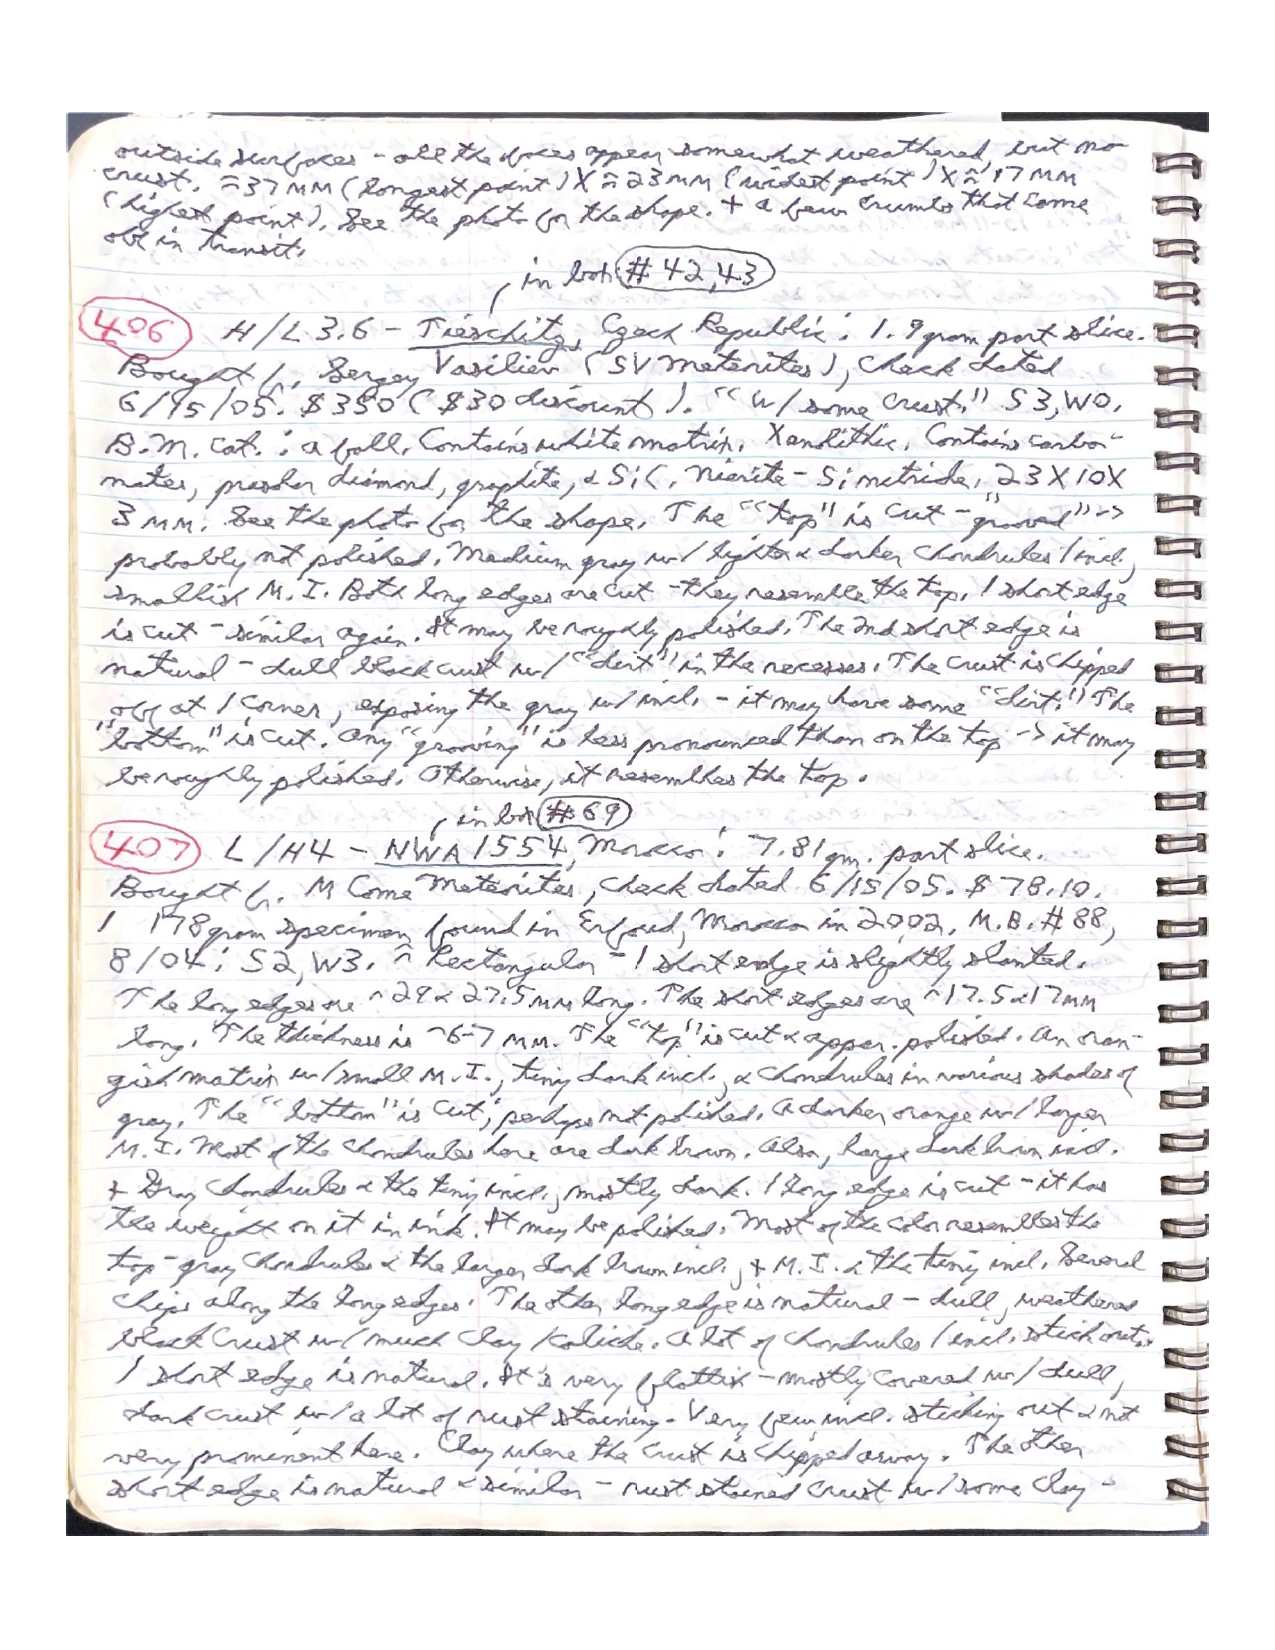 outside surfaces - all the faces appear somewhat weathered, but no
crust. ≈37 MM (longest point) X ≈23 MM (widest point) X ≈17 MM
(highest point). See the photo for the shape. + a few crumbs that came
off in transit.
in lot #42,43
406 H/L 3.6 - Tieschitz, Czech Republic: 1.9 gram part slice.
Bought fr. Sergey Vasiliev (SV Meteorites), check dated
6/15/05. $350 ($30 discount). "w/some crust." S3, W0.
B.M. cat.: a fall. Contains white matrix. Xenolithic. Contains carbo-
nates, presolar diamond, graphite, & SiC. Nierite - Si nitride. 23 X 10 X
3 MM. See the photo for the shape. The "top" is cut - "grooved" ->
probably not polished. Medium gray w/ lighter & darker chondrules/incl.,
smallish M.I. Both long edges are cut - they resemble the top. 1 short edge
is cut - similar again. It may be roughly polished. The 2nd short edge is
natural - dull black crust w/ "dirt" in the recesses. The crust is chipped
off at 1 corner, exposing the gray w/ incl. - it may have some "dirt." The
"bottom" is cut. Any "grooving" is less pronounced than on the top -> it may
be roughly polished. Otherwise, it resembles the top.
in lot #69
407 L/H4 - NWA 1554, Morocco: 7.81 gm. part slice.
Bought fr. McCome Meteorites, check dated 6/15/05. $78.10.
1 178 gram specimen found in Erfoud, Morocco in 2002. M.B. #88,
8/04: S2, W3. ≈ Rectangular - 1 short edge is slightly slanted.
The long edges are ~29 & 27.5 mm long. The short edges are ~17.5 & 17 MM
long. The thickness is ~6-7 MM. The "top" is cut & appar. polished. An oran-
gish matrix w/ small M.I., tiny dark incl., & chondrules in various shades of
gray. The "bottom" is cut, perhaps not polished. A darker orange w/ larger
M.I. Most of the chondrules here are dark brown. Also, large dark brown incl.
+ Gray chondrules & the tiny incl., mostly dark. 1 long edge is cut - it has
the weight on it in ink. It may be polished. Most of the color resembles the
top - gray chondrules & the larger dark brown incl., + M.I. & the tiny incl. Several
chips along the long edges. The other long edge is natural - dull, weathered
black crust w/ much clay/caliche. A lot of chondrules/incl. stick out.
1 short edge is natural. It's very flattish - mostly covered w/ dull,
dark crust w/ a lot of rust staining. Very few incl. sticking out & not
very prominent here. Clay where the crust is chipped away. The other
short edge is natural & similar - rust stained crust w/ some clay -